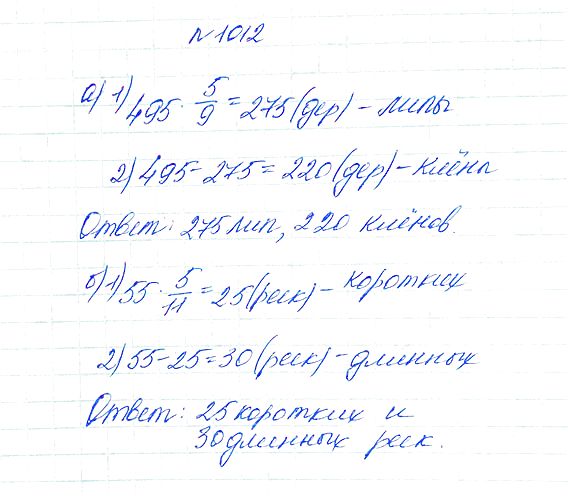 №1012
а) 1) 495 · 5/9 = 275 (дер) - липы
2) 495 - 275 = 220 (дер) - клёны
Ответ: 275 лип, 220 клёнов.
б) 1) 55 · 5/11 = 25 (реек) - коротких
2) 55 - 25 = 30 (реек) - длинных
Ответ: 25 коротких и
30 длинных реек.